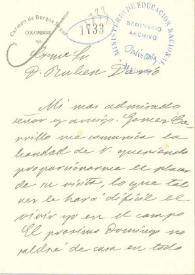 Carmen de Burgos Seguí
COLOMBINE
1733
MINISTERIO DE EDUCACION NACIONAL
SEMINARIO
ARCHIVO
Rubén Darío
D. Ruben Dario
Mi mas admirado
señor y amigo: Gomez Ca-
rrillo me comunica la
bondad de V. queriendo
proporcionarme el placer
de su visita, lo que tal
vez le hará dificil el
vivir yo en el campo
El proximo Domingo no
saldré de casa en todo